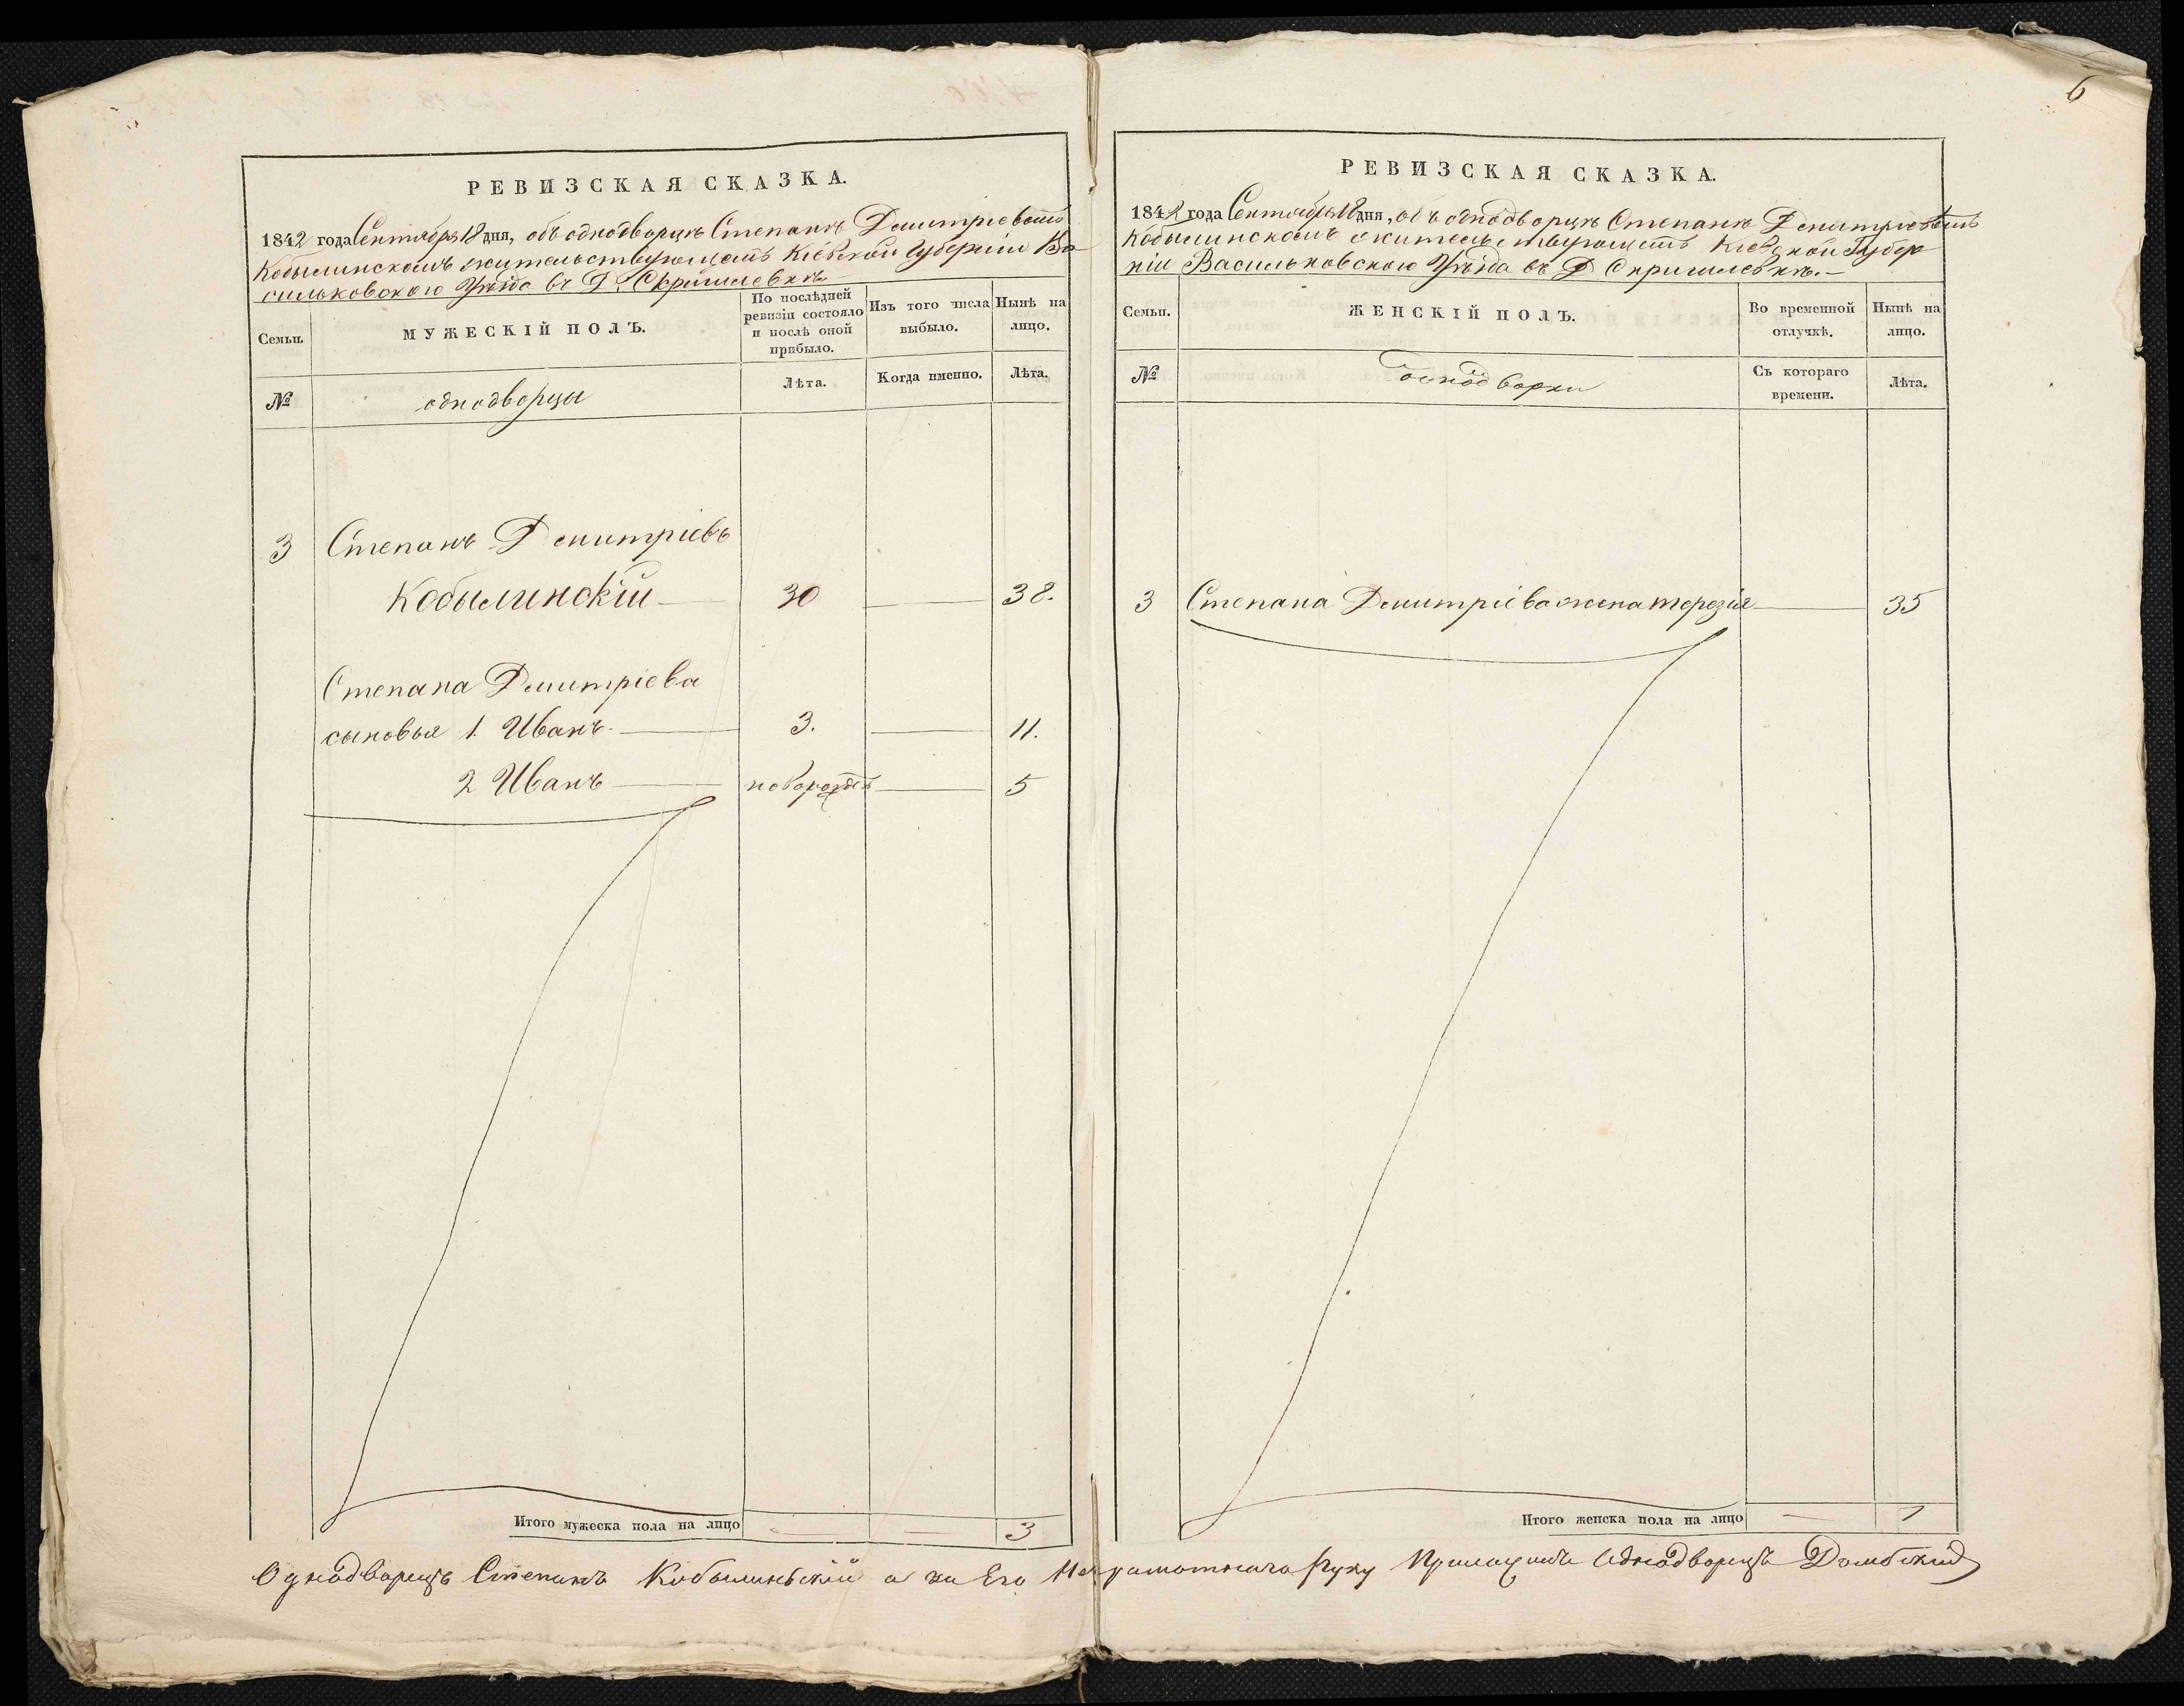 6
РЕВИЗСКАЯ СКАЗКА.
1842 года Сентября 18 дня, объ однодворцѣ Степанѣ Дмитріевомъ
Кобылинскомъ жительствующемъ Кіевской Губерніи Ва
сильковского Уѣзда въ Д. Скригилевкѣ
Семьи.
МУЖЕСКІЙ ПОЛЪ.
По послѣдней
ревизіи состояло
и послѣ оной
прибыло.
Изъ того числа
выбыло.
Нынѣ на
лицо.
№
однодворцы
Лѣта.
Когда именно.
Лѣта.
3 Степанъ Дмитріевъ
Кобылинскій 30 38.
Степана Дмитріева
сыновья 1. Иванъ 3. 11.
2 Иванъ новорожден 5
Итого мужеска пола на лицо 3
РЕВИЗСКАЯ СКАЗКА.
1842 года Сентября 18 дня, объ однодворцѣ Степанѣ Дмитріевомъ
Кобылинскомъ жительствующемъ Кіевской Губер
ніи Васильковского Уѣзда въ Д Скригилевкѣ.
Семьи.
ЖЕНСКІЙ ПОЛЪ.
Во временной
отлучкѣ.
Нынѣ на
лицо.
№
Съ котораго
времени.
Лѣта.
3 Степана Дмитріева жена терезія 35
Итого женска пола на лицо 1
Однодворецъ Степанъ Кобылиньскій а за Его Неграмотнаго Руку Приложилъ Однодворецъ Домбский